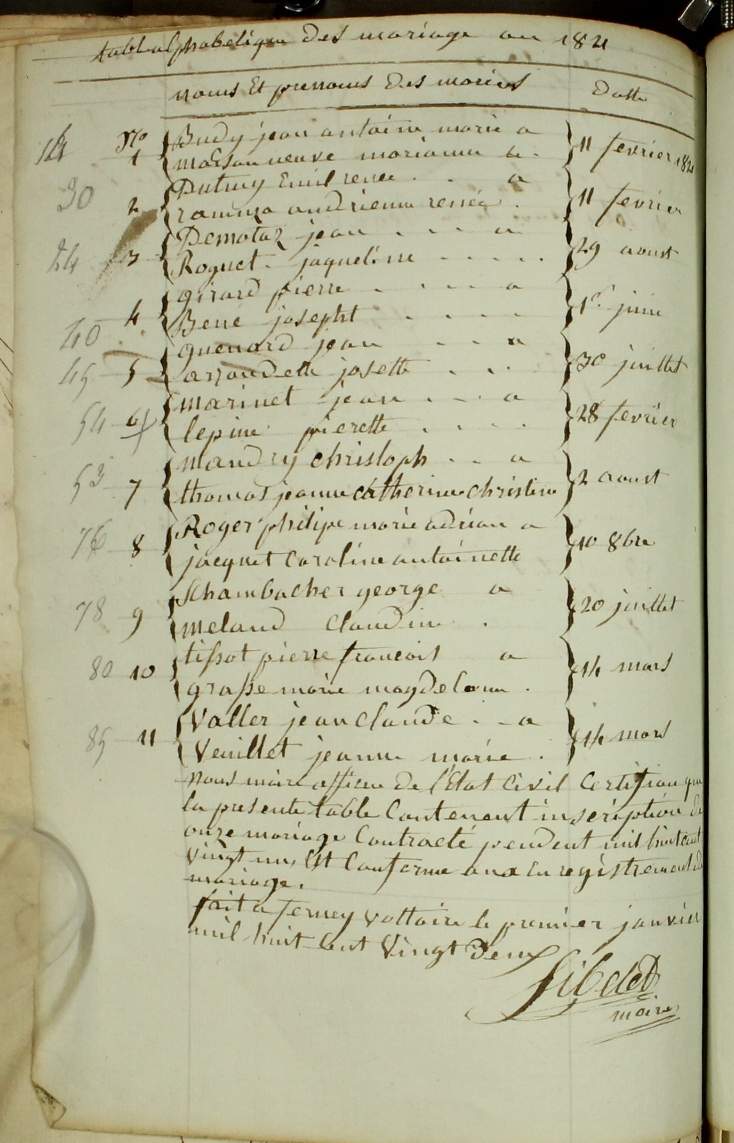 table alphabetique des mariage an 1821
noms Et prenoms des mariés datte
14 No 1 Budy jean antoine marie a
maison neuve marianne a. 11 fevrier 1821
30 2 Dutruy Emil renee . . a
ramma andrienne renée . 11 fevrier
24 3 Demotaz jean . . . a
Roguet. jaqueline . . . . . 29 aoust
girard pierre . . . . a
40 4 Bene josepht . . . . . 1er juin
guenard jean . . . a
45 5 arzaudette josette . . . 30 juillet
marinet jean . . . a
54 6 lepine pierette . . . . 28 fevrier
mandry christoph . . a
53 7 thomas jeanne catherine christine 2 aoust
76 8 Roger philipe marie adrian a
jacquet Caroline antoinette 10 8bre
Schambacher george a
78 9 meland Claudine . 20 juillet
80 10 tissot pierre francois a
grasse marie magdelaine . 14 mars
85 11 Vallet jean Claude . . a
Veuillet jeanne marie . 14 mars
nous maire officier de l'Etat Civil Certifion que
la presente table Contenant inscription de
onze mariage Contracté pendent mil huit cent
vingt un, Est Conforme aux Enregistrement de
mariage.
fait a ferney voltaire le premier janvier
mil huit cent Vingt deux
maire